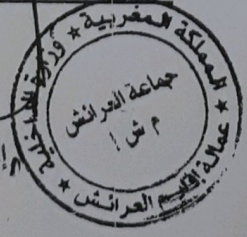 المملكة المغربية ★ وزارة الداخلية ★
عمالة إقليم العرائش ★
جماعة العرائش
م ش 1